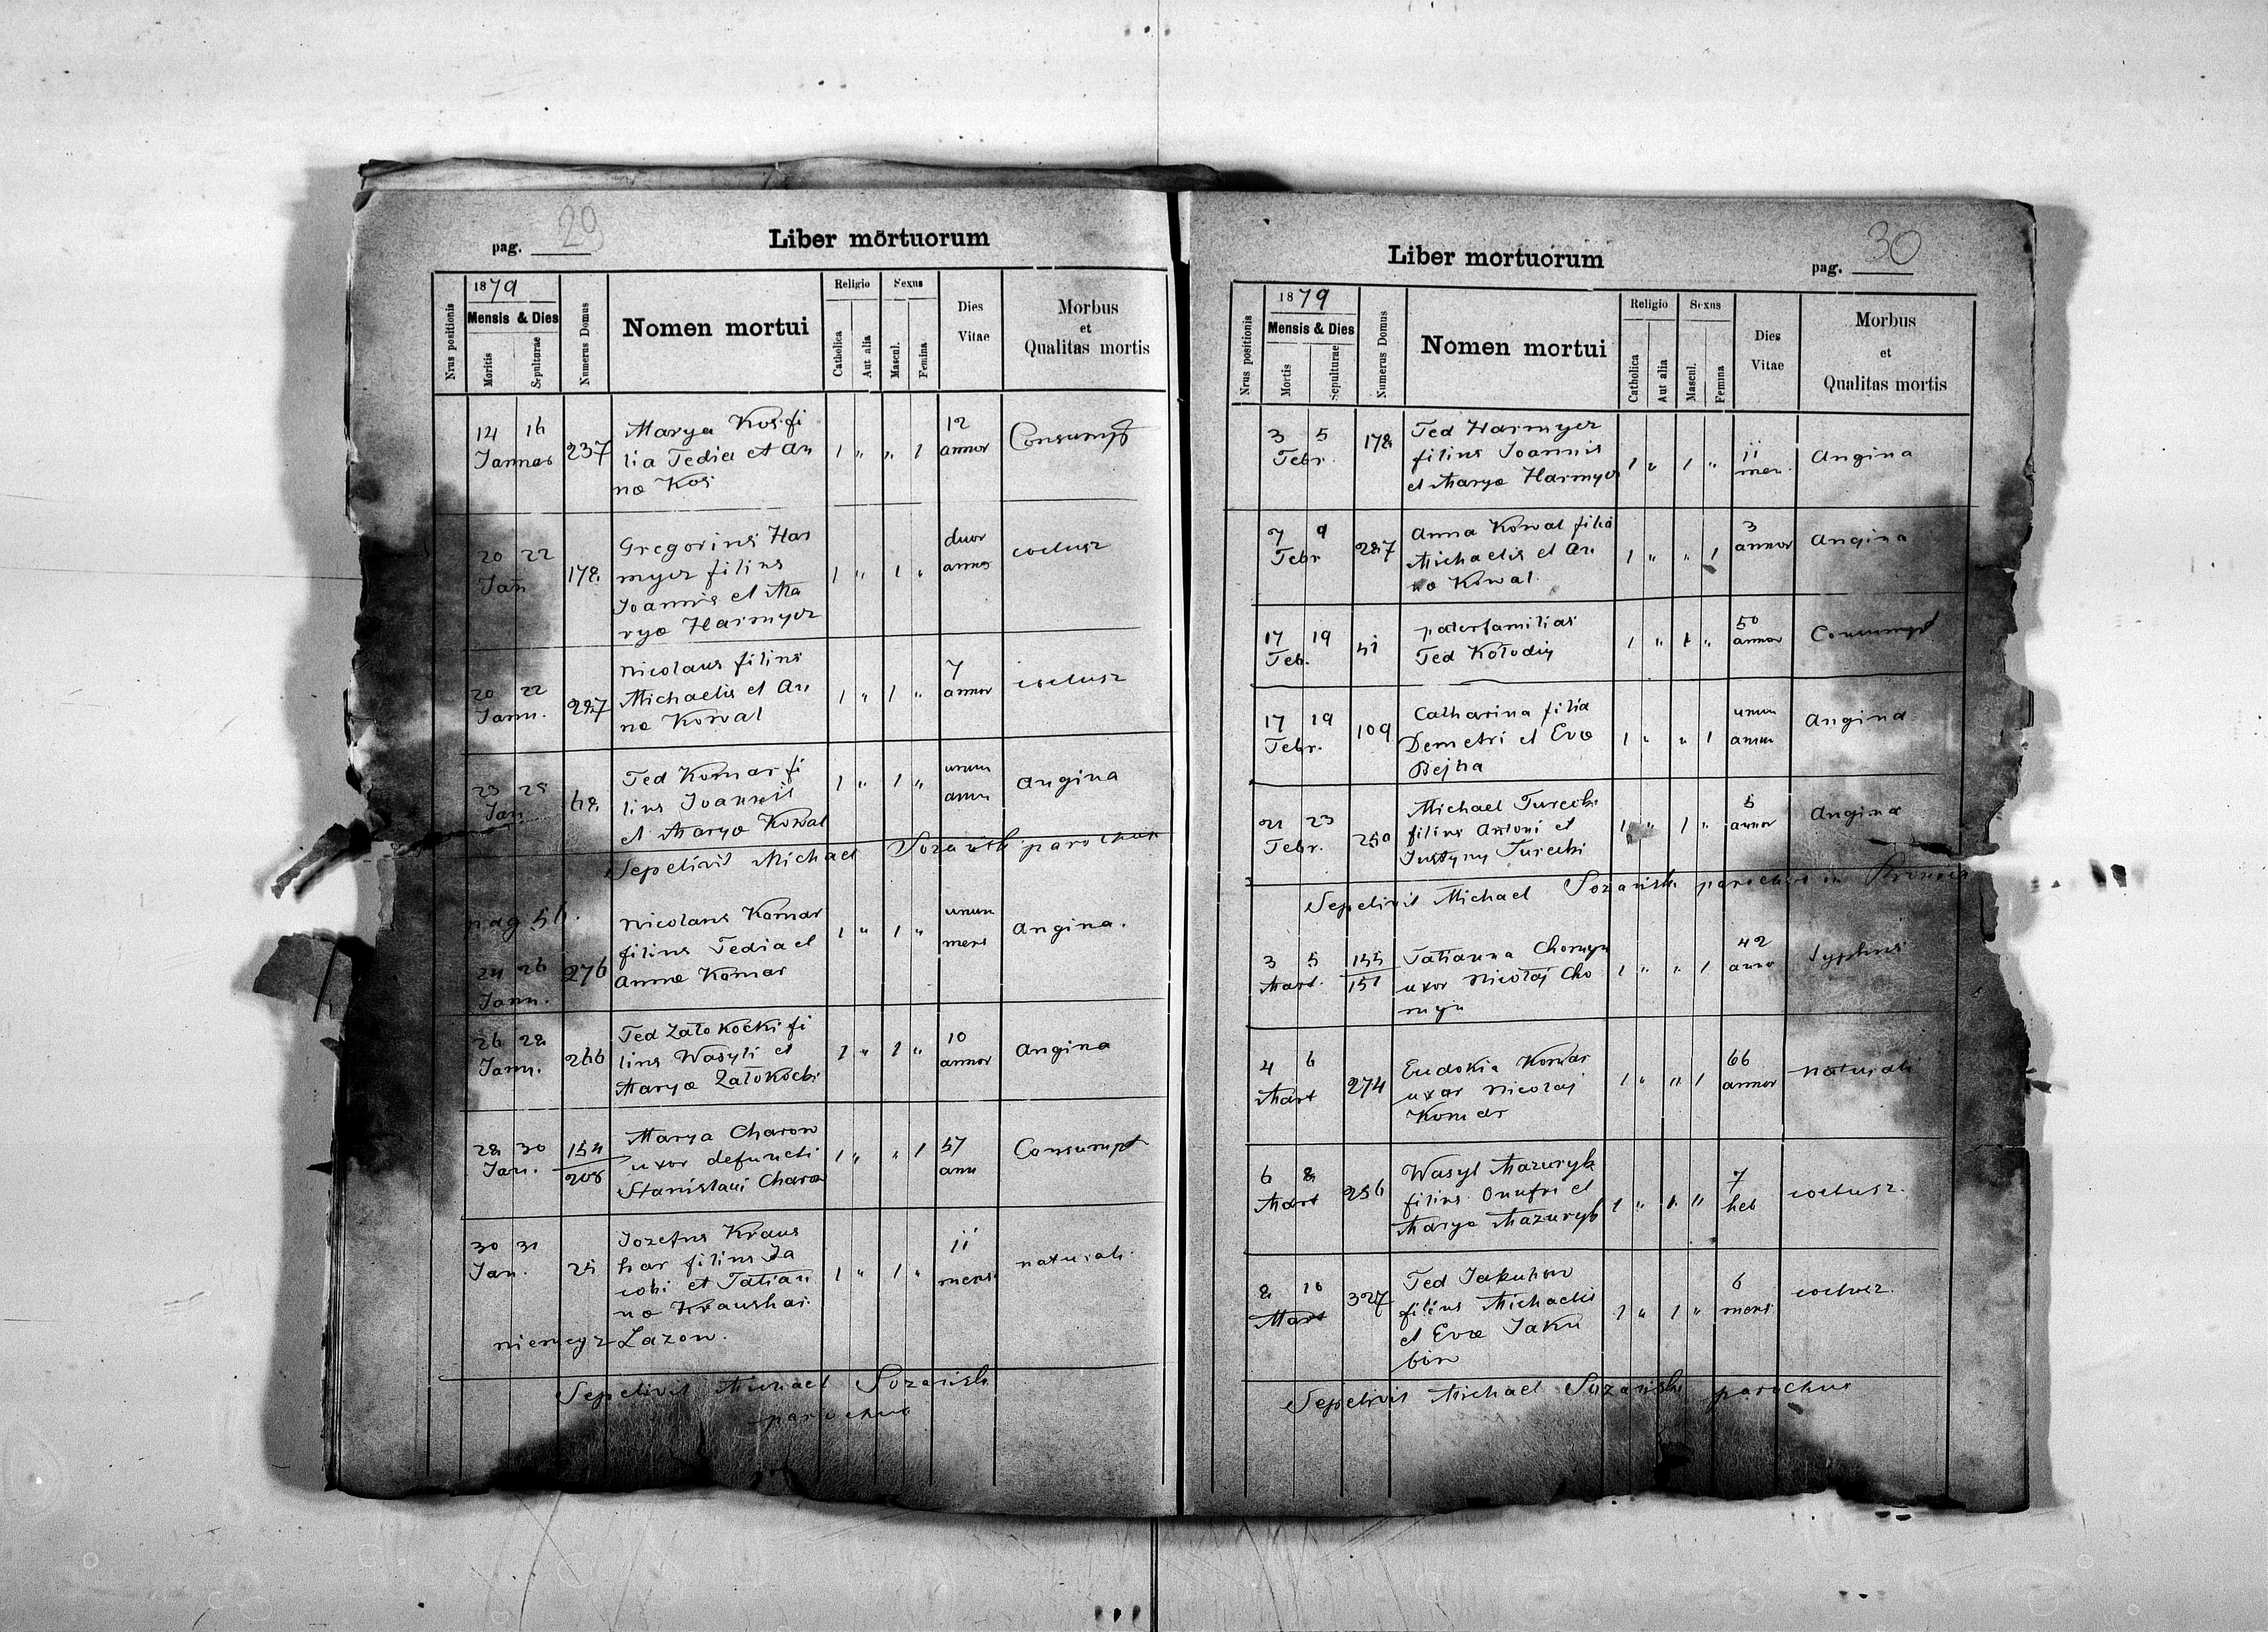 pag. 29
Liber mortuorum
Nrus positionis
1879
Mensis & Dies
Moritis
Sepulturae
Numerus Domus
Nomen mortui
Religio
Catholica
Aut alia
Sexus
Mascul.
Femina
Dies
Vitae
Morbus
et
Qualitas mortis
14 16
Januar
237
Marya Kos fi
lia Fedia et An
næ Kos
1 " " 1
12
annor
Consumpt
20 22
Jan
178
Gregorius Har
myer filius
Joannis et Ma
ryæ Harmyer
1 " 1 "
duor
annor
coclusz
20 22
Janu.
287
Nicolaus filius
Michaelis et An
næ Kowal
1 " 1 "
7
annor
coclusz
23 25
Jan
68
Fed Komar fi
lius Joannis
et Maryæ Kowal
1 " 1 "
unum
annu
Angina
Sepelivit Michael Sozański parochus
pag 56.
24 26
Janu.
276
Nicolaus Komar
filius Fedia et
Annæ Komar
1 " 1 "
unum
mens
Angina.
26 28
Janu.
266
Fed Załokocki fi
lius Wasyli et
Maryæ Załokocki
1 " 1 "
10
annor
Angina
28 30
Jan.
154
208
Marya Charow
uxor defuncti
Stanislaui Charow
1 " " 1
57
ann
Consumpt
30 31
Jan.
25
Jozefus Kraus
har filius Ja
cobi et Tatian
næ Kraushar
niemcy z Łazow.
1 " 1 "
11
mens
naturals.
Sepelivit Michael Sozański
parochus
Liber mortuorum
pag. 30
Nrus positionis
1879
Mensis & Dies
Mortis
Sepulturae
Numerus Domus
Nomen mortui
Religio
Catholica
Aut alia
Sexus
Mascul.
Femina
Dies
Vitae
Morbus
et
Qualitas mortis
3 5
Febr.
178
Fed Harmyer
filius Joannis
et Maryæ Harmyer
1 " 1 "
11
men.
Angina
7 9
Febr
287
Anna Kowal filia
Michaelis et An
næ Kowal.
1 " " 1
3
annor
Angina
17 19
Feb.
51
paterfamilias
Fed Kołodiy
1 " 1 "
50
annor
Consumpt
17 19
Febr.
109
Catharina filia
Demetri et Evæ
Dejna
1 " " 1
unum
annum
Angina
21 23
Febr.
250
Michael Turecki
filius Antoni et
Justyny Turecki
1 " 1 "
5
annor
Angina
Sepelivit Michael Sozański parochus in
3 5
Mart.
155
151
Tatianna Chomyn
uxor Nicołaj Cho
myn
1 " " 1
42
anno
typhus
4 6
Mart
274
Eudokia Komar
uxor Nicolaj
Komar
1 " " 1
66
annor
naturals
6 8
Mart
256
Wasyl Mazuryk
filius Onufri et
Marya Mazuryk
1 " 1 "
7
heb
coclusz.
8 10
Mart
327
Fed Jakubow
filius Michaelis
et Evæ Jaku
bow
1 " 1 "
6
mens
coclusz.
Sepelivit Michael Sozański parochus